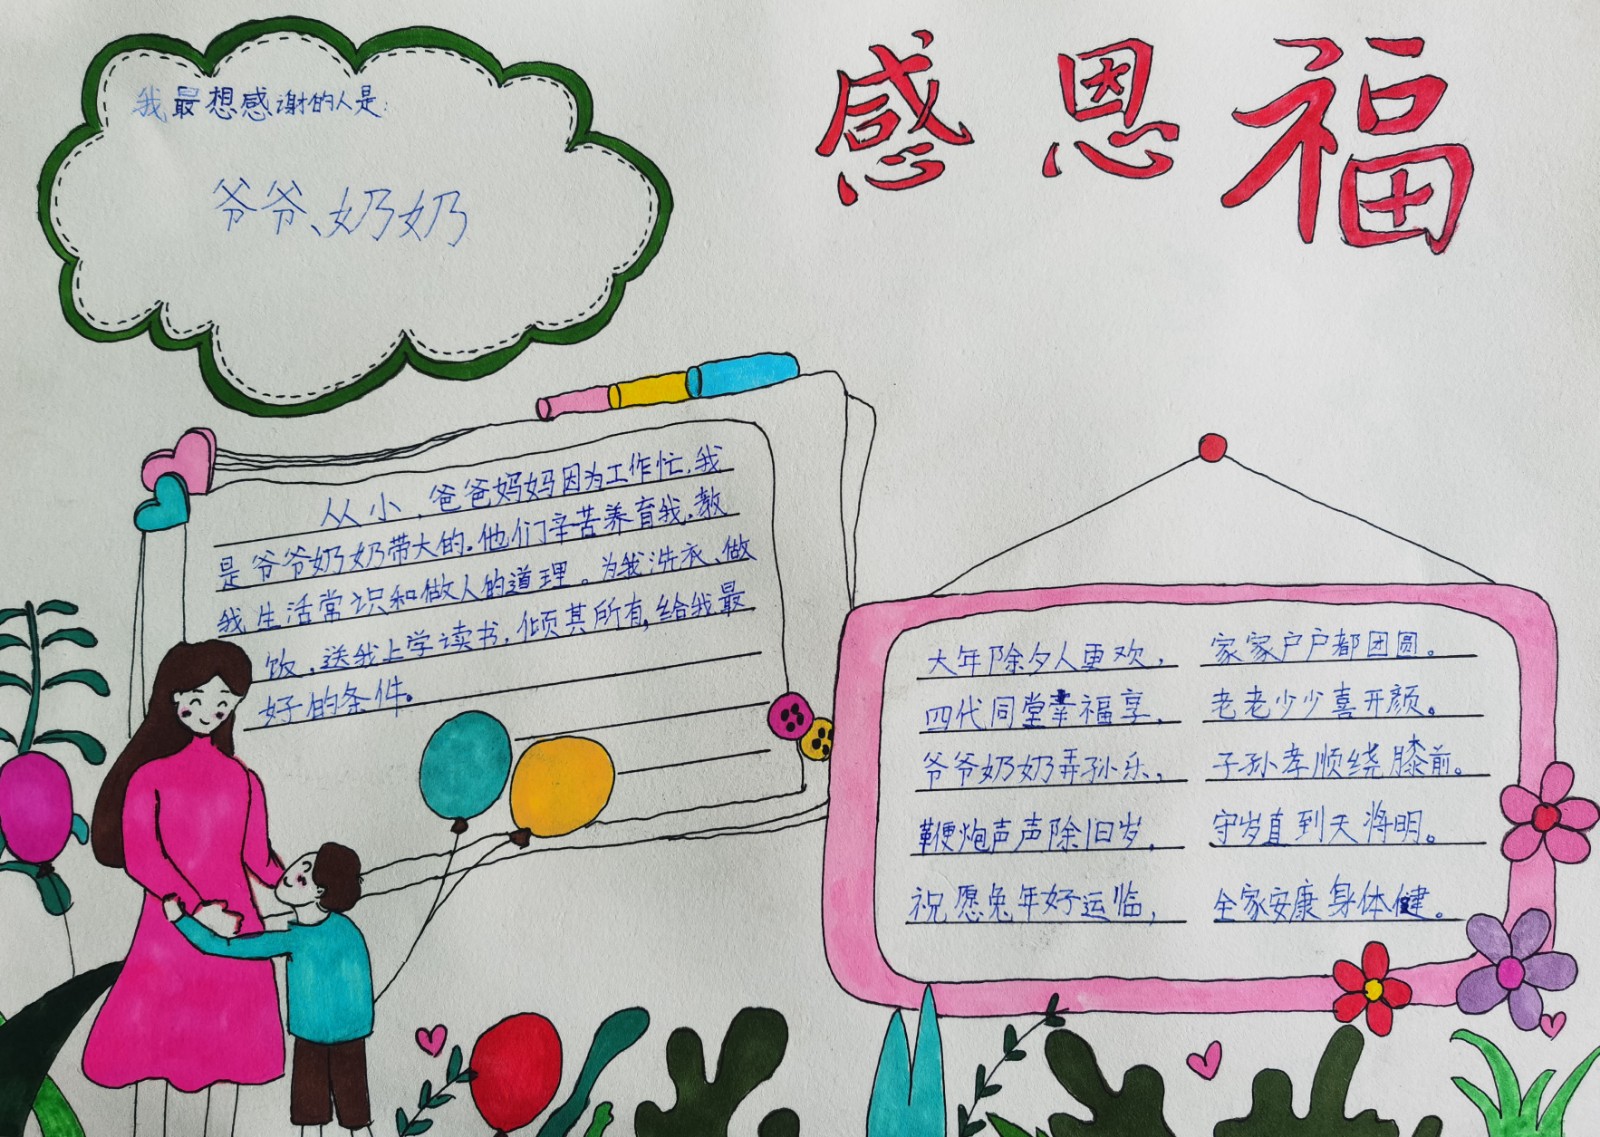 感恩福
我最想感谢的人是:
爷爷、奶奶
从小,爸爸妈妈因为工作忙,我
是爷爷奶奶带大的。他们辛苦养育我,教
我生活常识和做人的道理。为我洗衣、做
饭,送我上学读书,倾其所有,给我最
好的条件。
大年除夕人更欢, 家家户户都团圆。
四代同堂幸福享, 老老少少喜开颜。
爷爷奶奶弄孙乐, 子孙孝顺绕膝前。
鞭炮声声除旧岁, 守岁直到天将明。
祝愿兔年好运临, 全家安康身体健。